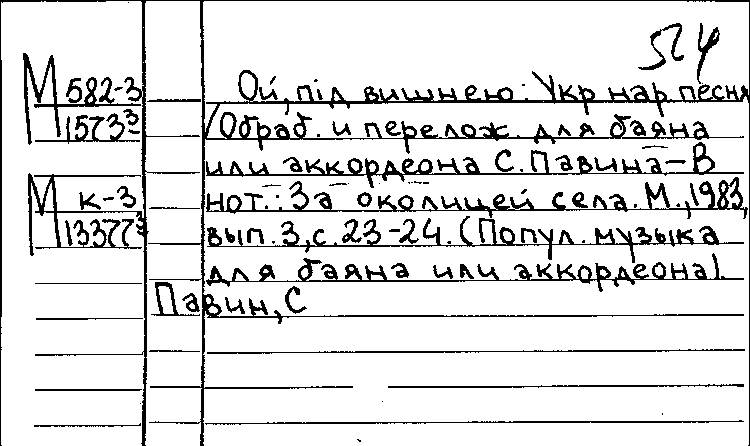 524
М 582-3
1573³
М к-3
13377³
Ой, під вишнею: Укр нар. песня
/Обраб. и перелож. для баяна
или аккордеона С. Павина – В
нот.: За околицей села. М., 1983,
вып. 3, с. 23-24. (Попул. музыка
для баяна или аккордеона).
Павин, С